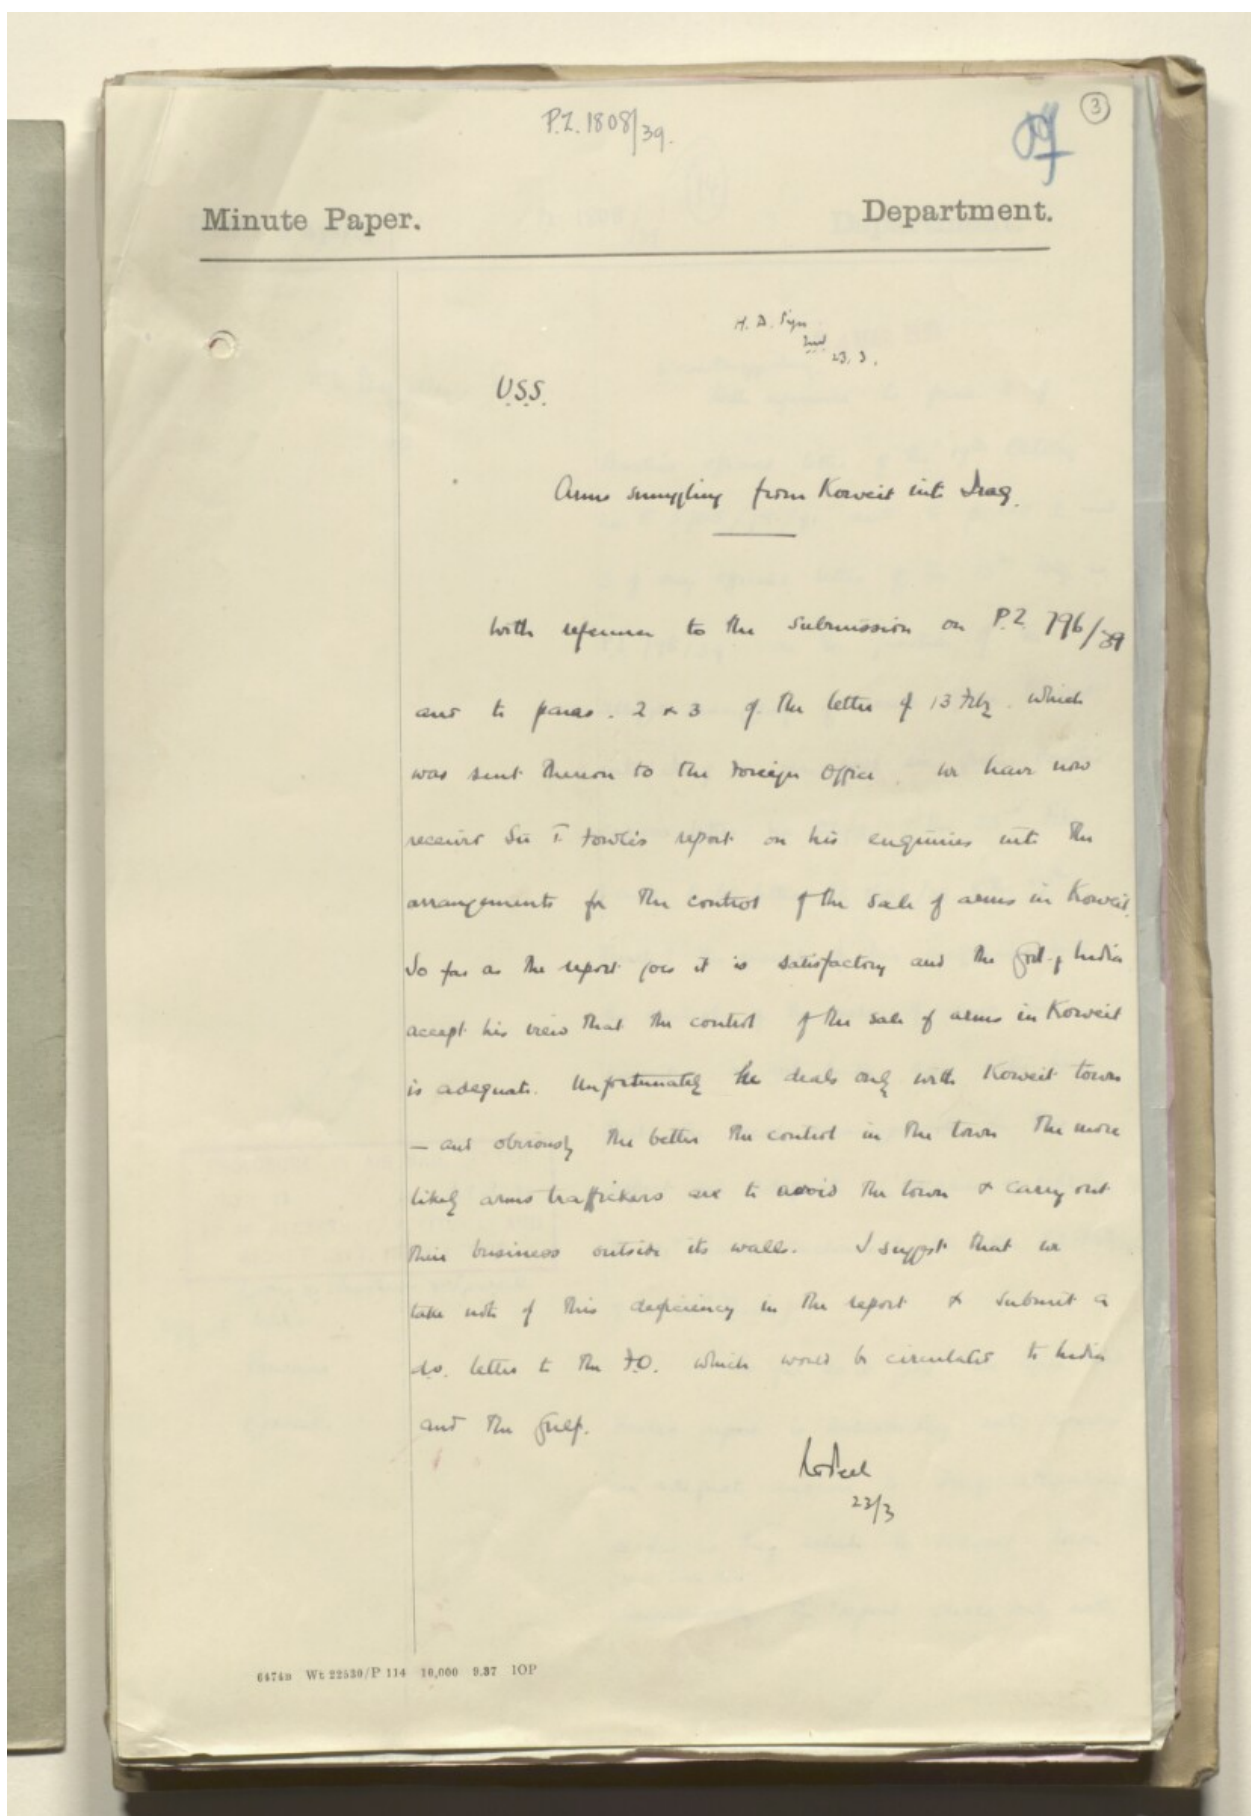 P.Z. 1808/39.
3
Minute Paper.
Department.
23.3.
U.S.S.
Arms smuggling from Koweit into Iraq.
With reference to the submission on P.Z. 796/39
and to paras. 2 & 3 of the letter of 13 Feb. which
was sent thereon to the Foreign Office, we have now
received Sir T. Fowle's report on his enquiries into the
arrangements for the control of the sale of arms in Koweit.
So far as the report goes it is satisfactory and the Govt. of India
accept his view that the control of the sale of arms in Koweit
is adequate. Unfortunately he deals only with Koweit town
— and obviously the better the control in the town the more
likely arms traffickers are to avoid the town & carry out
their business outside its walls. I suggest that we
take note of this deficiency in the report & submit a
d.o. letter to the F.O. which would be circulated to India
and the Gulf.
23/3
6474B Wt 22530/P 114 10,000 9.37 IOP